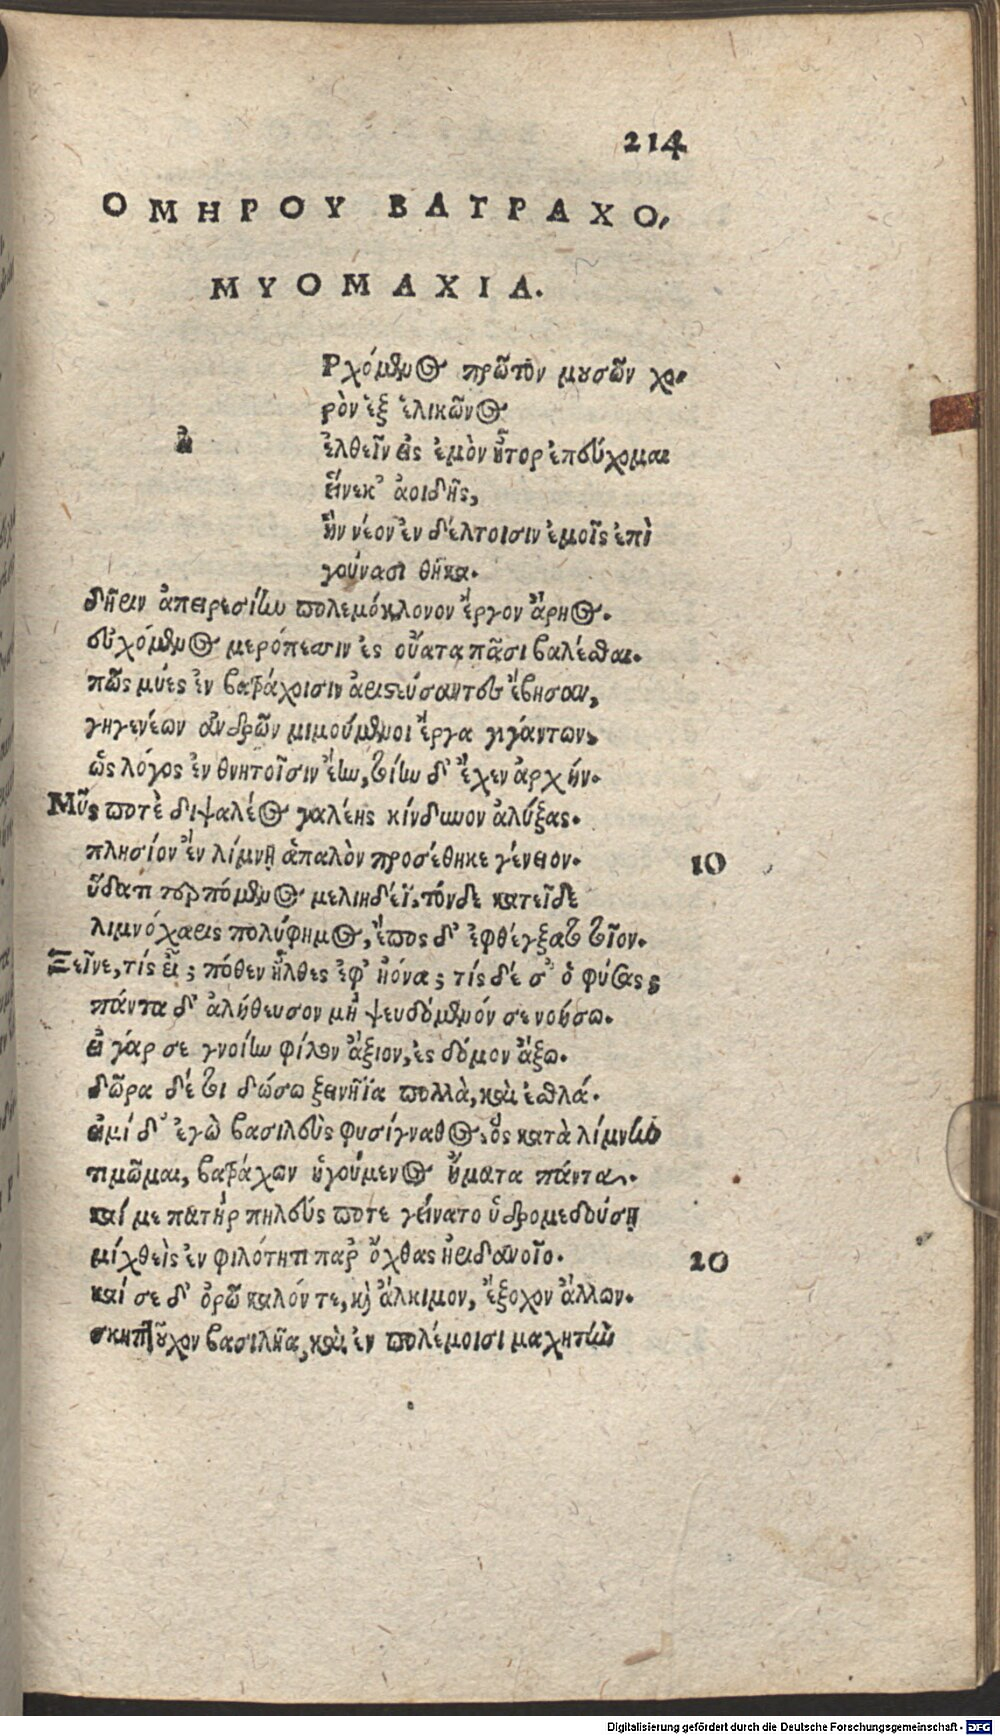 214
ΟΜΗΡΟΥ ΒΑΤΡΑΧΟ,
ΜΥΟΜΑΧΙΑ.
ἀ
Ρχόμενος πρῶτον μουσῶν χο-
ρὸν ἐξ ἑλικῶνος
ἐλθεῖν εἰς ἐμὸν ἦτορ ἐπεύχομαι
εἵνεκ' ἀοιδῆς,
ἣν νέον ἐν δέλτοισιν ἐμοῖς ἐπὶ
γούνασι θῆκα.
δῆριν ἀπειρεσίην πολεμόκλονον ἔργον ἄρηος.
εὐχόμενος μερόπεσσιν ἐς οὔατα πᾶσι βαλέσθαι.
πῶς μύες ἐν βατράχοισιν ἀριστεύσαντες ἔβησαν,
γηγενέων ἀνδρῶν μιμούμενοι ἔργα γιγάντων,
ὣς λόγος ἐν θνητοῖσιν ἔην, τοίην δ' ἔχεν ἀρχήν.
Μῦς ποτὲ διψαλέος γαλέης κίνδυνον ἀλύξας.
πλησίον ἐν λίμνῃ ἁπαλὸν προσέθηκε γένειον.
10
ὕδατι τερπόμενος μελιηδέϊ. τόνδε κατεῖδε
λιμνόχαρις πολύφημος, ἔπος δ' ἐφθέγξατο τοῖον.
Ξεῖνε, τίς εἶ; πόθεν ἦλθες ἐφ' ἠόνας; τίς δέ σ' ὁ φύσας;
πάντα δ' ἀλήθευσον μὴ ψευδόμενόν σε νοήσω.
εἰ γάρ σε γνοίην φίλον ἄξιον, ἐς δόμον ἄξω.
δῶρα δέ τοι δώσω ξεινήϊα πολλὰ, καὶ ἐσθλά.
εἰμί δ' ἐγὼ βασιλεὺς φυσίγναθος, ὃς κατὰ λίμνην
τιμῶμαι, βατράχων ἡγούμενος ἤματα πάντα.
καί με πατὴρ πηλεύς ποτε γείνατο ὑδρομεδούσῃ
μίχθεὶς ἐν φιλότητι παρ' ὄχθας ἠριδανοῖο.
20
καί σε δ' ὁρῶ καλόν τε, καὶ ἄλκιμον, ἔξοχον ἄλλων.
σκηπτοῦχον βασιλῆα, καὶ ἐν πολέμοισι μαχητὴν
Digitalisierung gefördert durch die Deutsche Forschungsgemeinschaft - DFG